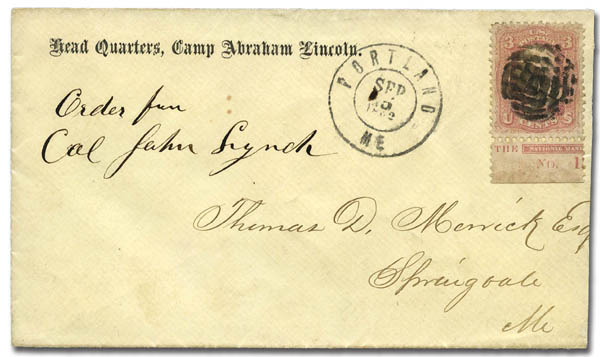 Head Quarters, Camp Abraham Lincoln.
PORTLAND
SEP
ME
Order from
Col John Lynch
3 3
U CENTS S
THE NATIONAL BANK
No. 1
Thomas D. Merrick Esq
Springvale
Me